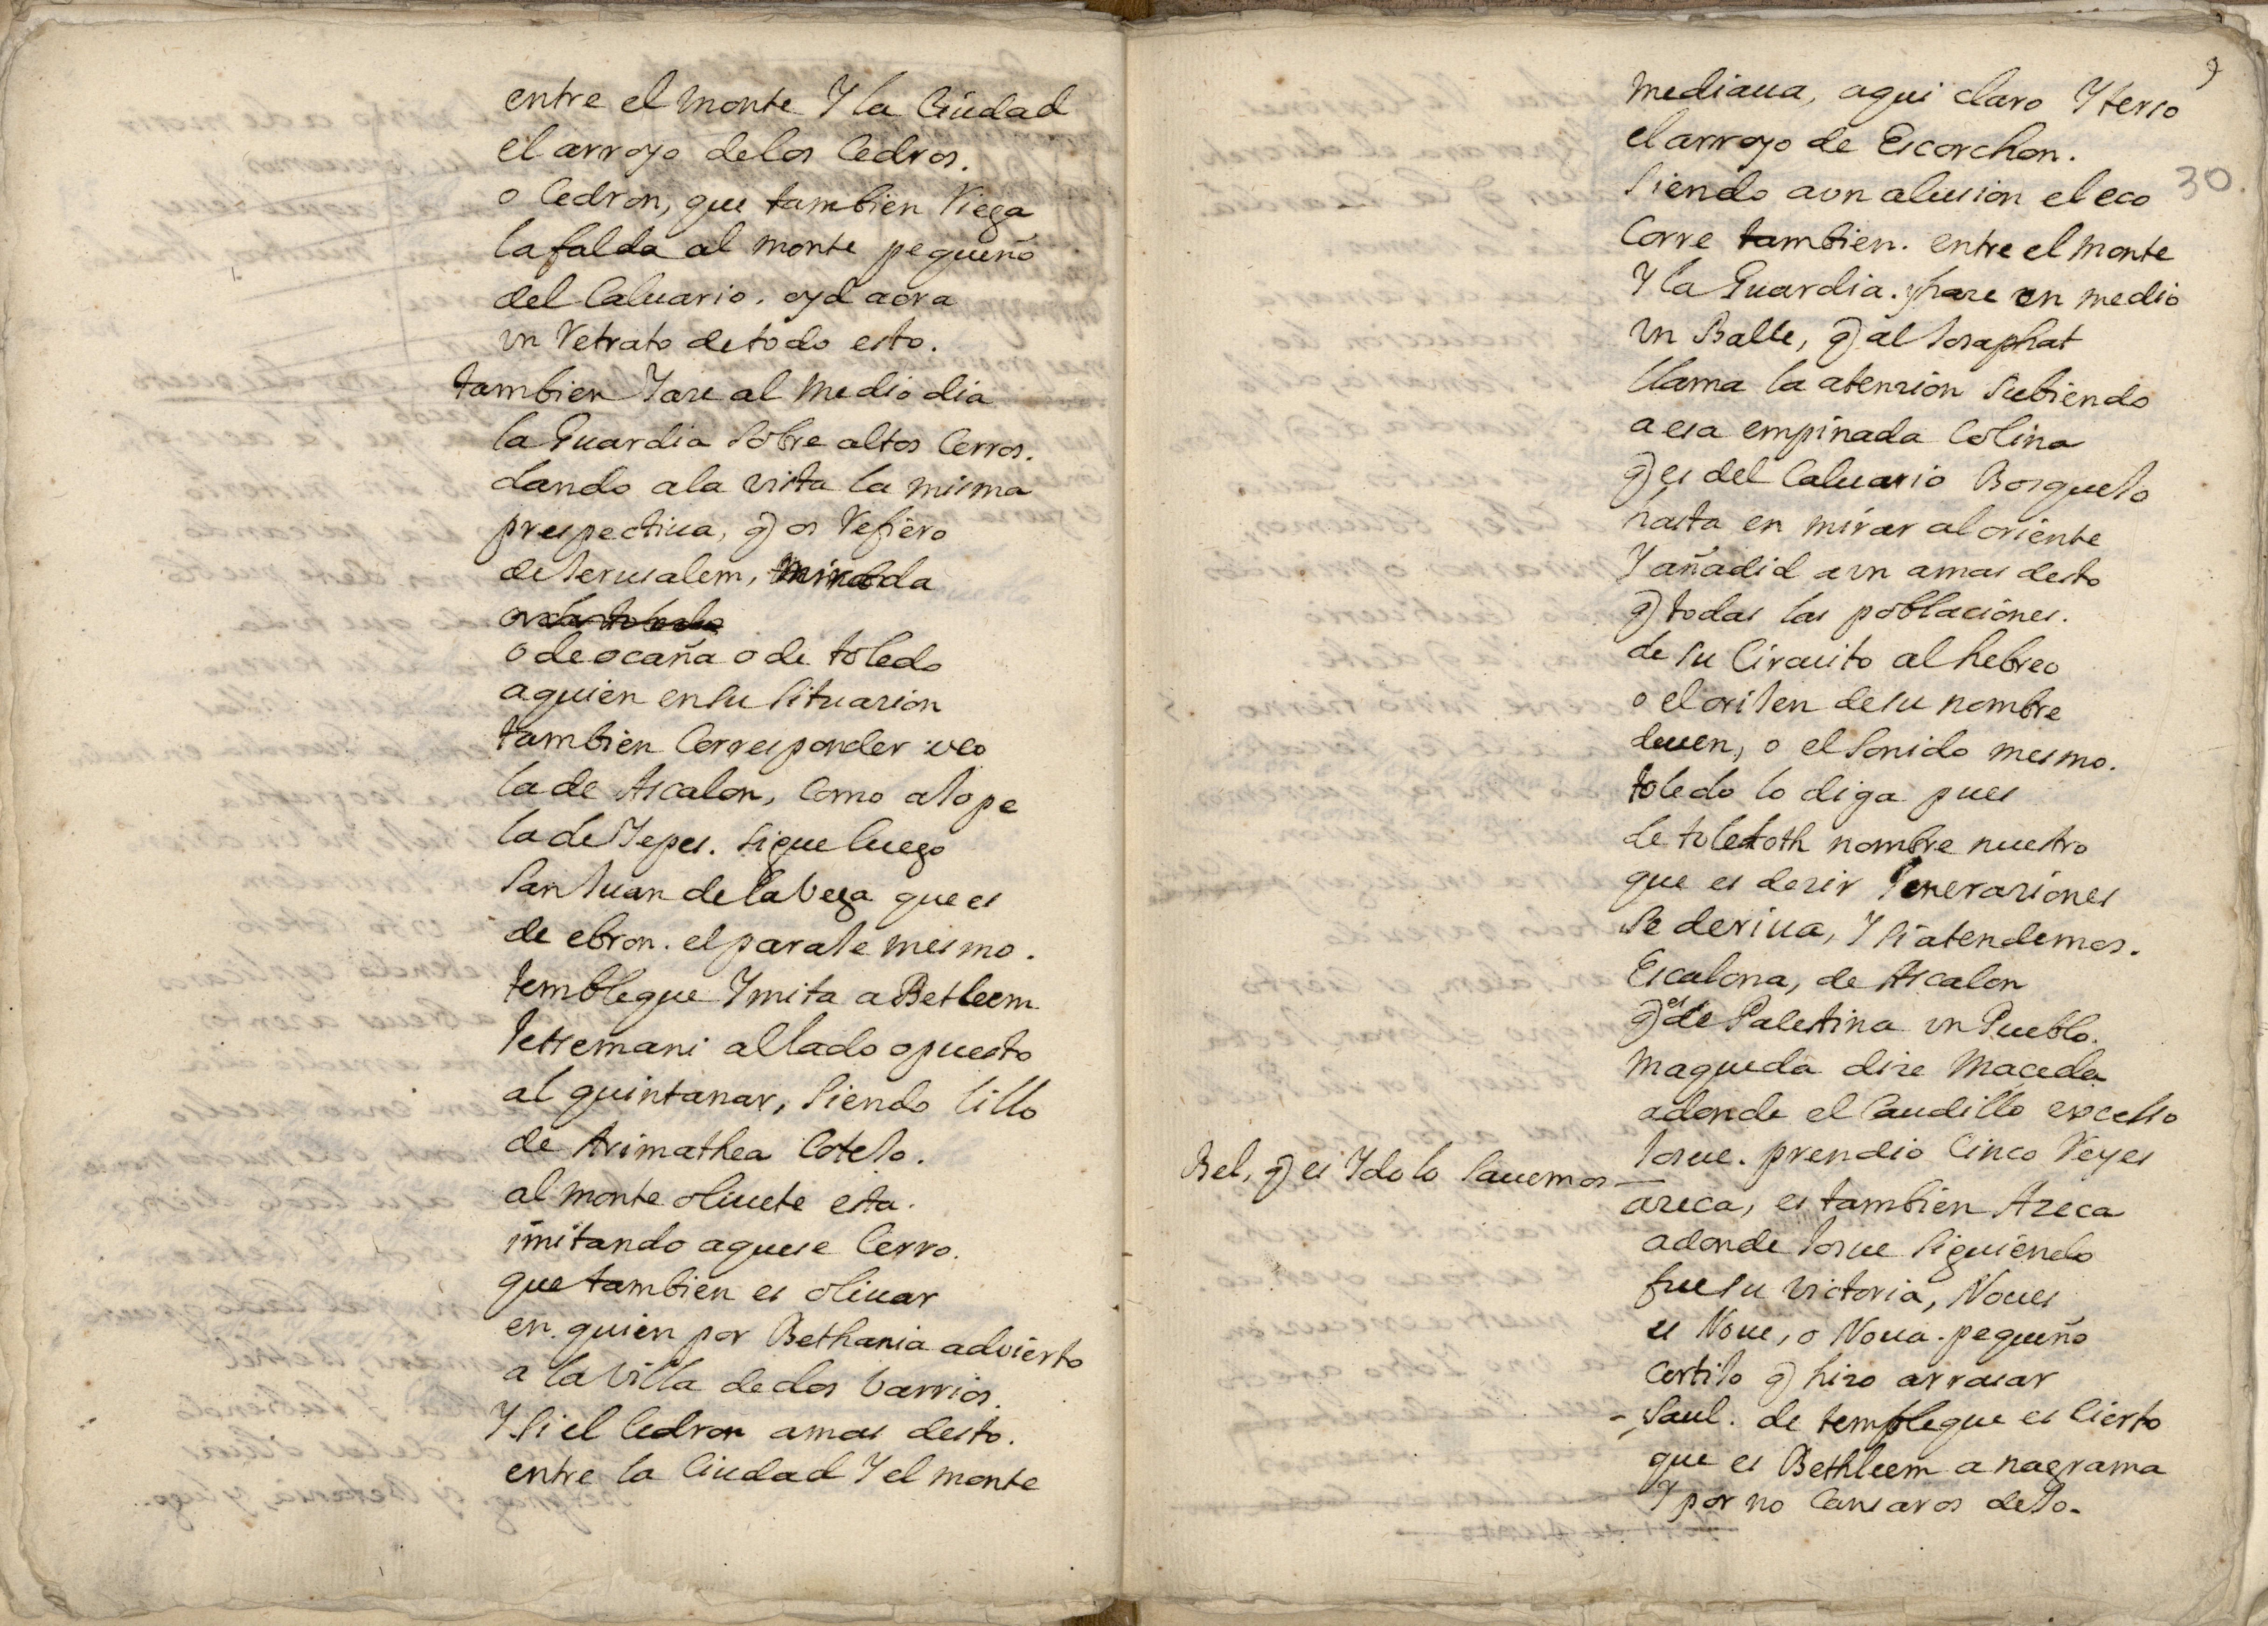 entre el monte Y la Ciudad
el arroyo de los Cedros.
o Cedron, que tambien Riega
la falda al monte pequeño
del Caluario. oyd aora
vn Retrato de todo esto.
tambien Yaze al medio dia
la Guardia sobre altos Cerros.
dando a la vista la misma
prespectiua, q) os Refiero
de Jerusalem, mirada
o de ocaña o de toledo
a quien en su situazion
tambien Corresponder veo
la de Ascalon, Como a Jope
la de Yepes. sigue luego
San Juan de la Vega que es
de ebron. el paraje mesmo.
tembleque Ymita a Betleem
Jetsemani al lado opuesto
al quintanar, siendo lillo
de Arimathea Cotejo.
al monte oliuete esta.
imitando aquese Cerro.
que tambien es oliuar
en quien por Bethania advierto
a la Villa de dos barrios.
Y si el Cedron amas desto.
entre la Ciudad Y el monte
9
30.
mediaua, aqui claro Y terso
el arroyo de Escorchon.
siendo aun alusion el eco
Corre tambien. entre el monte
Y la Guardia. y haze en medio
vn Balle, q) al Josaphat
llama la atenzion subiendo
a esa empinada Colina
q) es del Caluario Bosquejo
hasta en mirar al oriente
Y añadid aun amas desto
q) todas las poblaciones.
de su Circuito al hebreo
o el orijen de su nombre
deuen, o el sonido mesmo.
toledo lo diga pues
de toledoth nombre nuestro
que es dezir Jeneraziones
se deriua, Y si atendemos.
Escalona, de Ascalon
q) es de Palestina vn Pueblo.
Maqueda dize Maceda
adonde el Caudillo excelso
Josue. prendio Cinco Reyes
Bel, q) es Ydolo sauemos
azeca, es tambien Azeca
adonde Josue siguiendo
fue su victoria, Noues
es Noue, o Noua. pequeño
Cortijo q) hizo arrasar
- Saul. de tembleque es Cierto
que es Bethleem anagrama
Y por no Cansaros dejo.